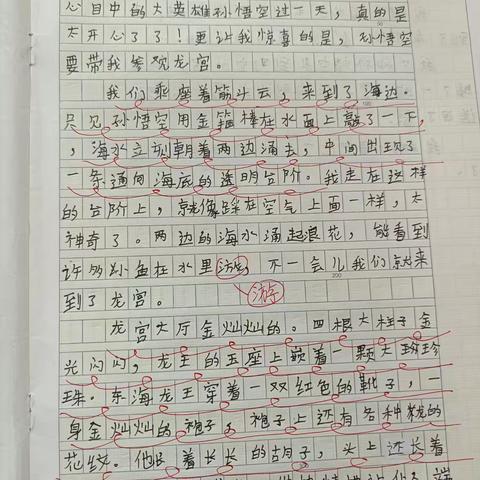 心目中的大英雄孙悟空过一天，真的是
太开心了了！更让我惊喜的是，孙悟空
要带我参观龙宫。
我们乘座着筋斗云，来到了海边。
只见孙悟空用金箍棒在水面上敲了一下，
，海水立刻朝着两边涌去，中间出现了
一条通向海底的透明台阶。我走在这样
的台阶上，就像踩在空气上面一样，太
神奇了。两边的海水涌起浪花，能看到
许多小鱼在水里游，不一会儿我们就来
游
到了龙宫。
200
龙宫大厅金灿灿的。四根大柱子金
光闪闪，龙王的玉座上嵌着一颗大珍珍
珠。东海龙王穿着一双红色的靴子，一
身金灿灿的袍子，袍子上还有各种龙的
花纹。他长着长长的胡子，头上还长着